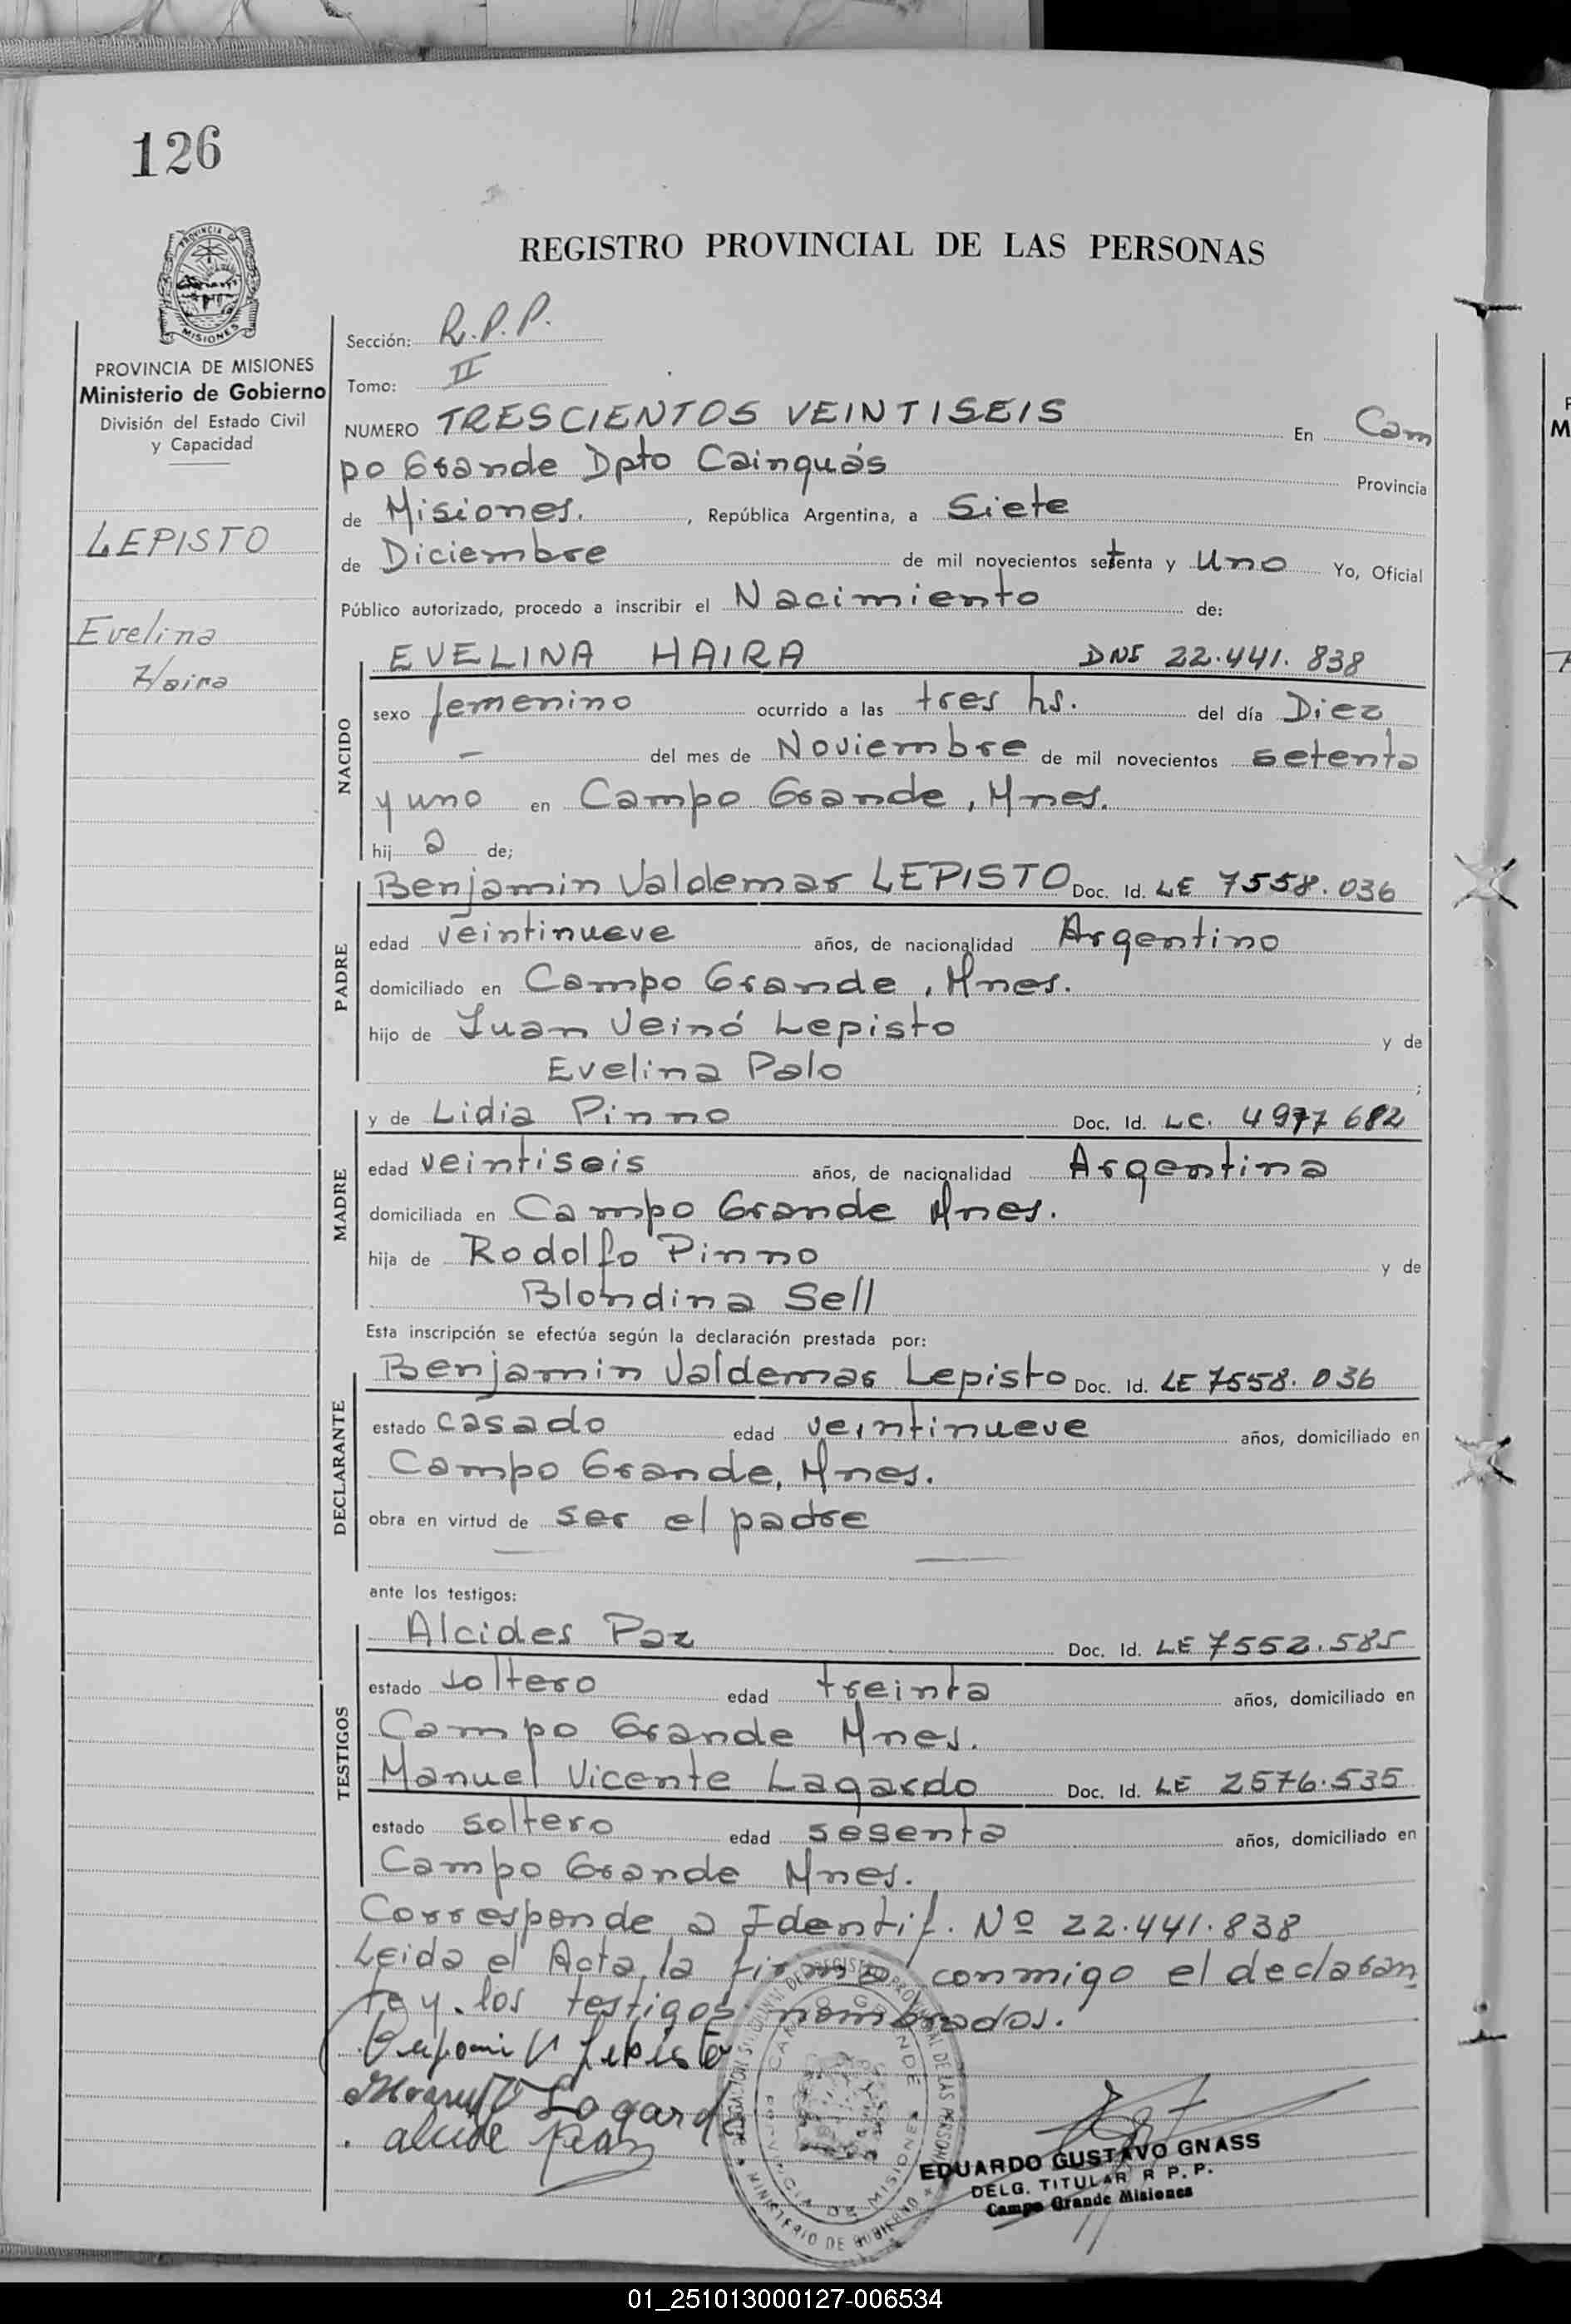 126
PROVINCIA DE
MISIONES
REGISTRO PROVINCIAL DE LAS PERSONAS
PROVINCIA DE MISIONES
Ministerio de Gobierno
División del Estado Civil
y Capacidad
LEPISTO
Evelina
Haira
Sección: R.P.P.
Tomo: II
NUMERO TRESCIENTOS VEINTISEIS En Cam
po Grande Dpto Cainguás Provincia
de Misiones. , República Argentina, a Siete
de Diciembre de mil novecientos setenta y Uno Yo, Oficial
Público autorizado, procedo a inscribir el Nacimiento de:
NACIDO
EVELINA HAIRA DNI 22.441.838
sexo femenino ocurrido a las tres hs. del día Diez
— del mes de Noviembre de mil novecientos setenta
y uno en Campo Grande, Mnes.
hij a de;
PADRE
Benjamin Valdemar LEPISTO Doc. Id. LE 7558.036
edad veintinueve años, de nacionalidad Argentino
domiciliado en Campo Grande, Mnes.
hijo de Juan Veinó Lepisto y de
Evelina Palo ;
MADRE
y de Lidia Pinno Doc. Id. LC. 4977682
edad veintiseis años, de nacionalidad Argentina
domiciliada en Campo Grande Mnes.
hija de Rodolfo Pinno y de
Blondina Sell
Esta inscripción se efectúa según la declaración prestada por:
DECLARANTE
Benjamin Valdemar Lepisto Doc. Id. LE 7558.036
estado casado edad veintinueve años, domiciliado en
Campo Grande, Mnes.
obra en virtud de ser el padre
ante los testigos:
TESTIGOS
Alcides Paz Doc. Id. LE 7552.585
estado soltero edad treinta años, domiciliado en
Campo Grande Mnes.
Manuel Vicente Lagardo Doc. Id. LE 2576.535
estado soltero edad sesenta años, domiciliado en
Campo Grande Mnes.
Corresponde a Identif. Nº 22.441.838
Leida el Acta, la firma conmigo el declaran
te y los testigos nombrados.
V Lepisto
Lagardo
Alcide Paz
CAMPO GRANDE
PROVINCIA DE MISIONES
MINISTERIO DE GOBIERNO
EDUARDO GUSTAVO GNASS
DELG. TITULAR R P. P.
Campo Grande Misiones
01_251013000127-006534